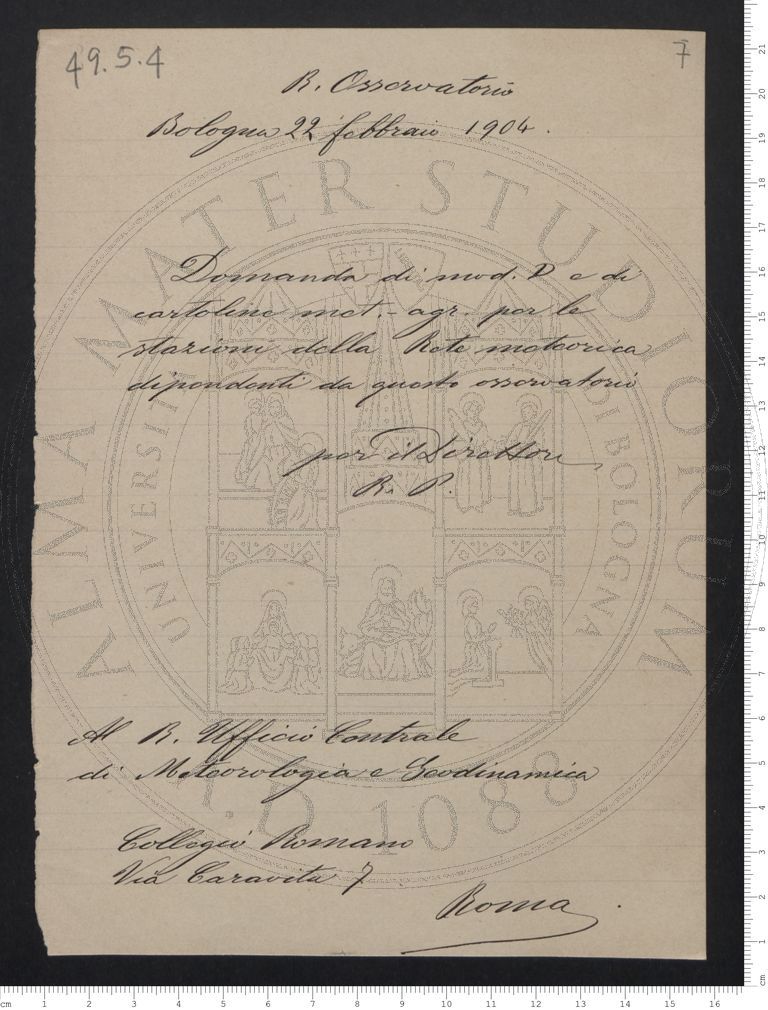 49.5.4
7
R. Osservatorio
Bologna 22 febbraio 1904.
Domanda di mod. D e di
cartoline met.- agr. per le
stazioni della Rete meteorica
dipendenti da questo osservatorio
per il Direttore
R. P.
Al R. Ufficio Centrale
di Meteorologia e Geodinamica
Collegio Romano
Via Caravita 7
Roma.
ALMA MATER STUDIORUM
UNIVERSITÀ DI BOLOGNA
A.D. 1088